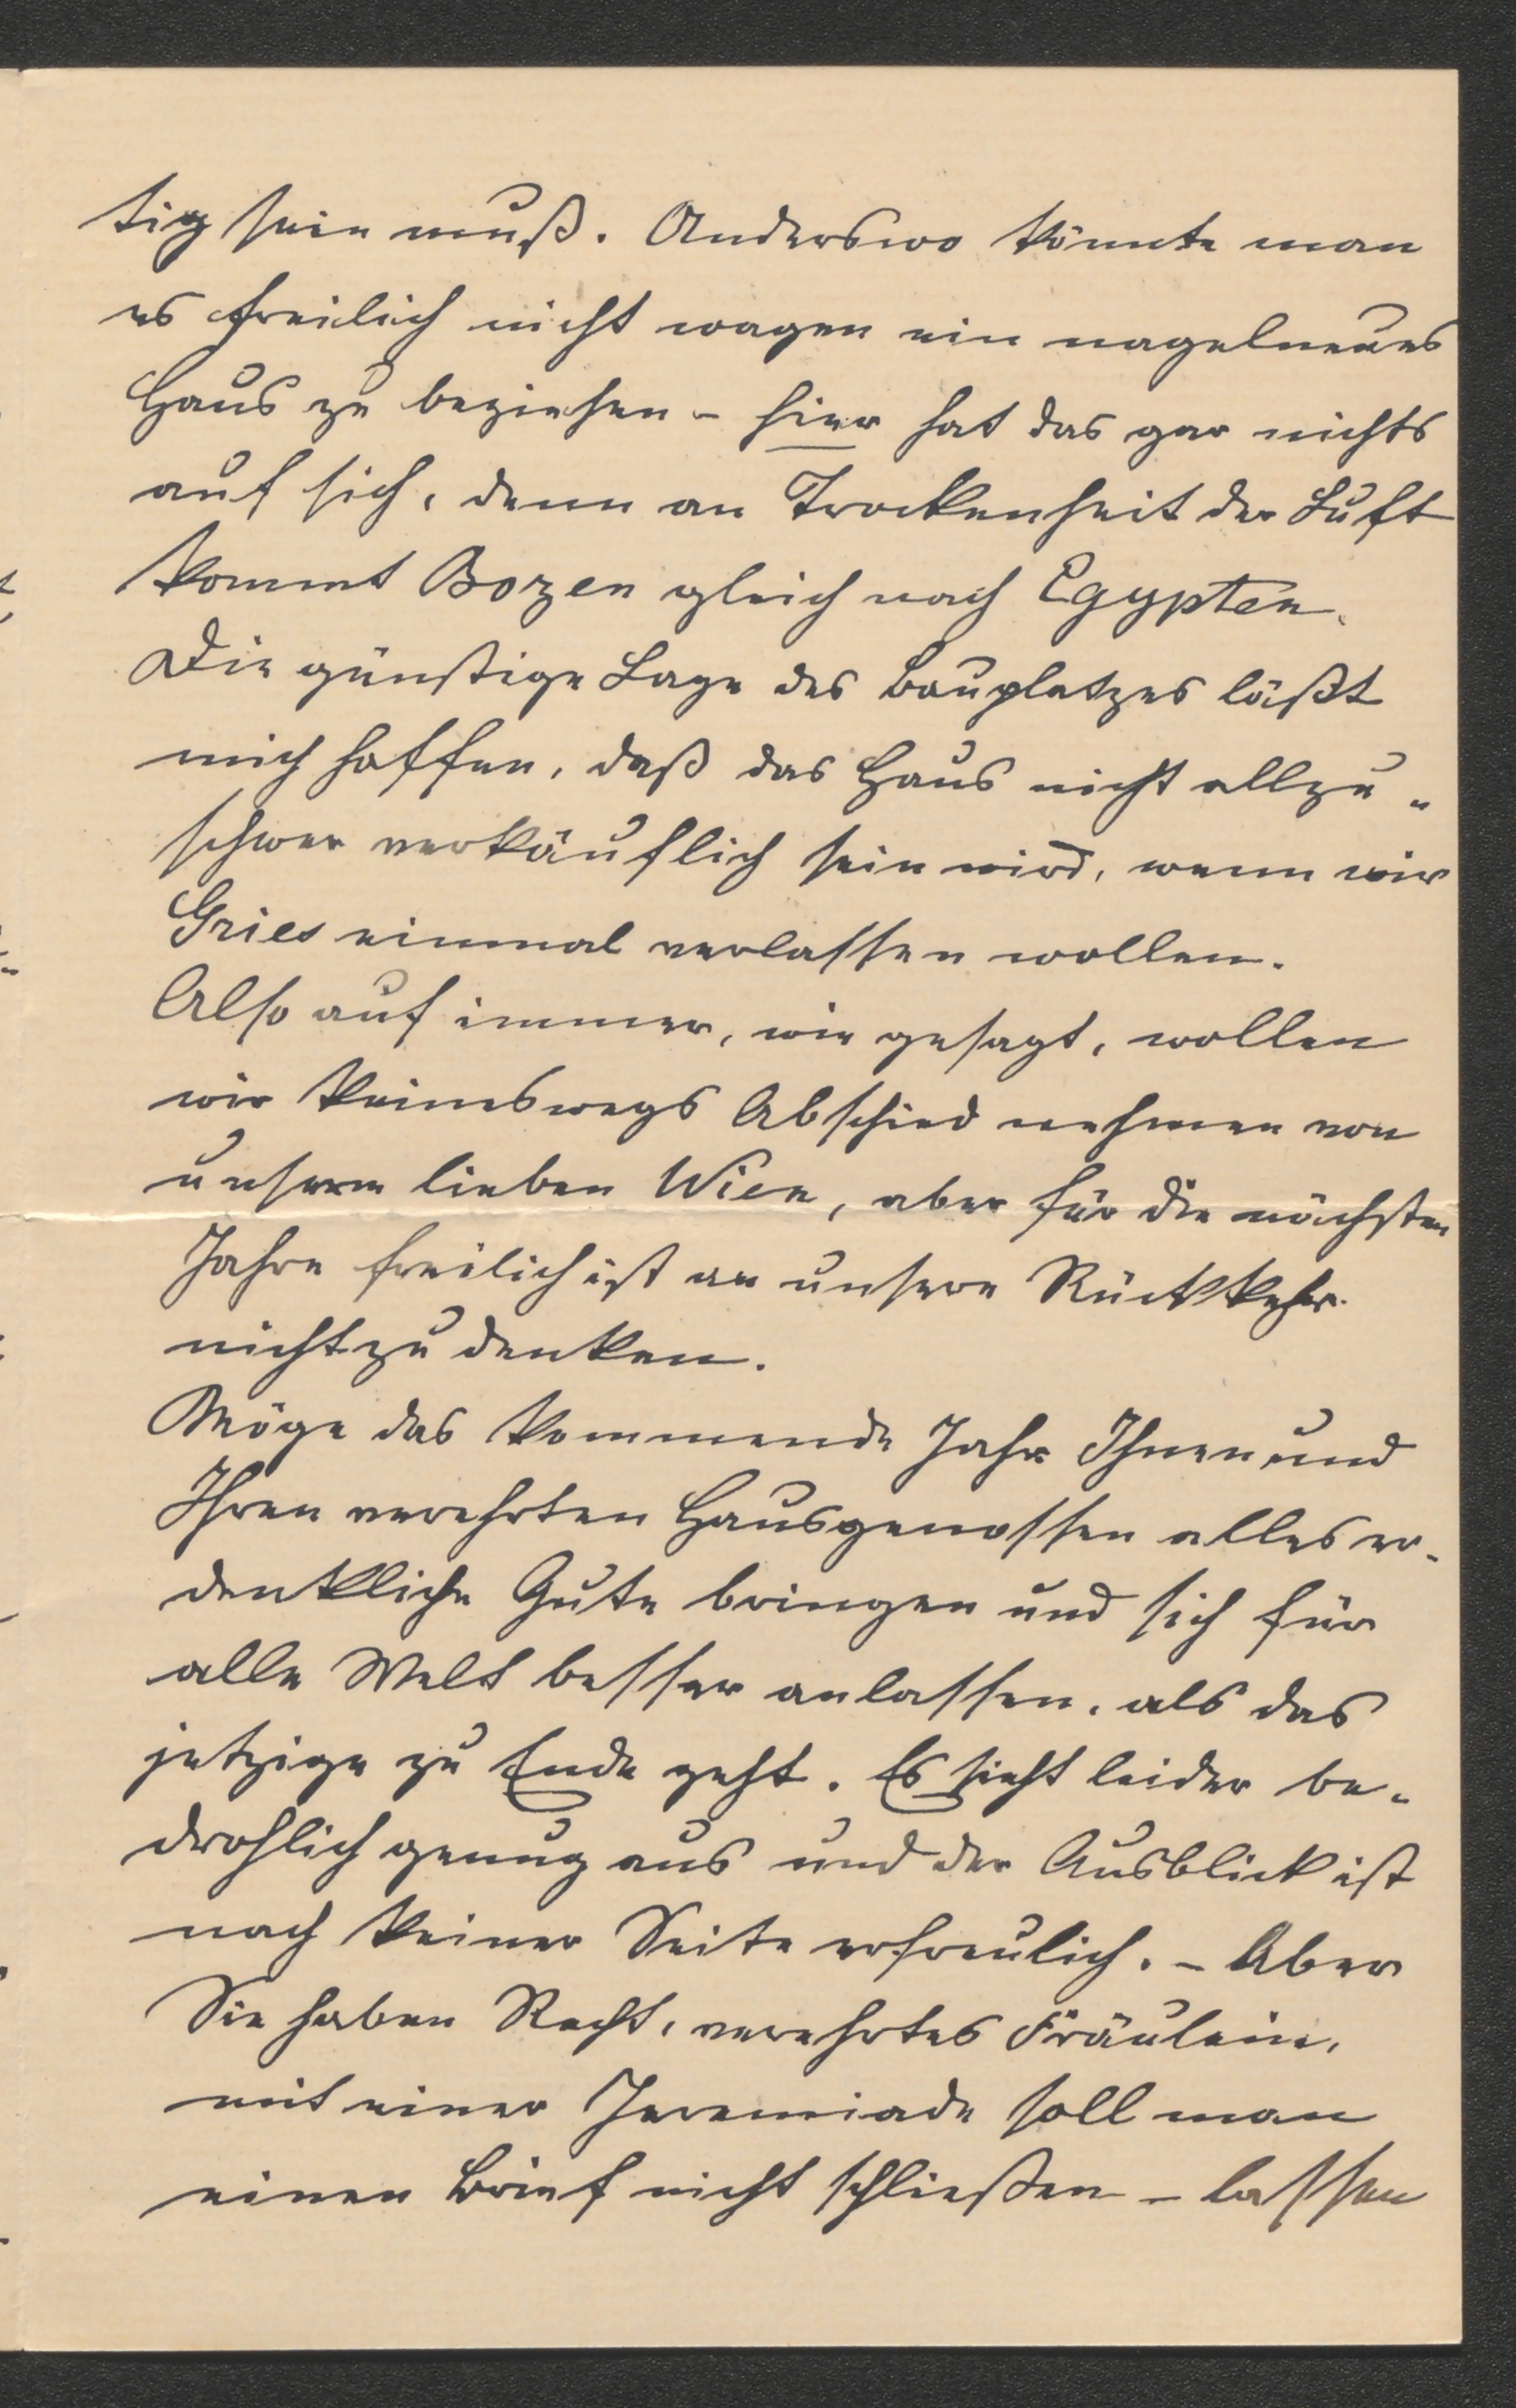 tig sein muß. Anderswo könnte man
es freilich nicht wagen ein nagelneues
Haus zu beziehen – hier hat das gar nichts
auf sich, denn an Trockenheit der Luft
kommt Bozen gleich nach Egypten.
Die günstige Lage des Bauplatzes läßt
mich hoffen, daß das Haus nicht allzu-
schwer verkäuflich sein wird, wenn wir
Gries einmal verlassen wollen.
Also auf immer, wie gesagt, wollen
wir keineswegs Abschied nehmen von
unserm lieben Wien, aber für die nächsten
Jahre freilich ist an unsere Rückkehr
nicht zu denken.
Möge das kommende Jahr Ihnen und
Ihren verehrten Hausgenossen alles er-
denkliche Gute bringen und sich für
alle Welt besser anlassen, als das
jetzige zu Ende geht. Es sieht leider be-
drohlich genug aus und der Ausblick ist
nach keiner Seite erfreulich. – Aber
Sie haben Recht, verehrtes Fräulein,
mit einer Jeremiade soll man
einen Brief nicht schließen – lassen